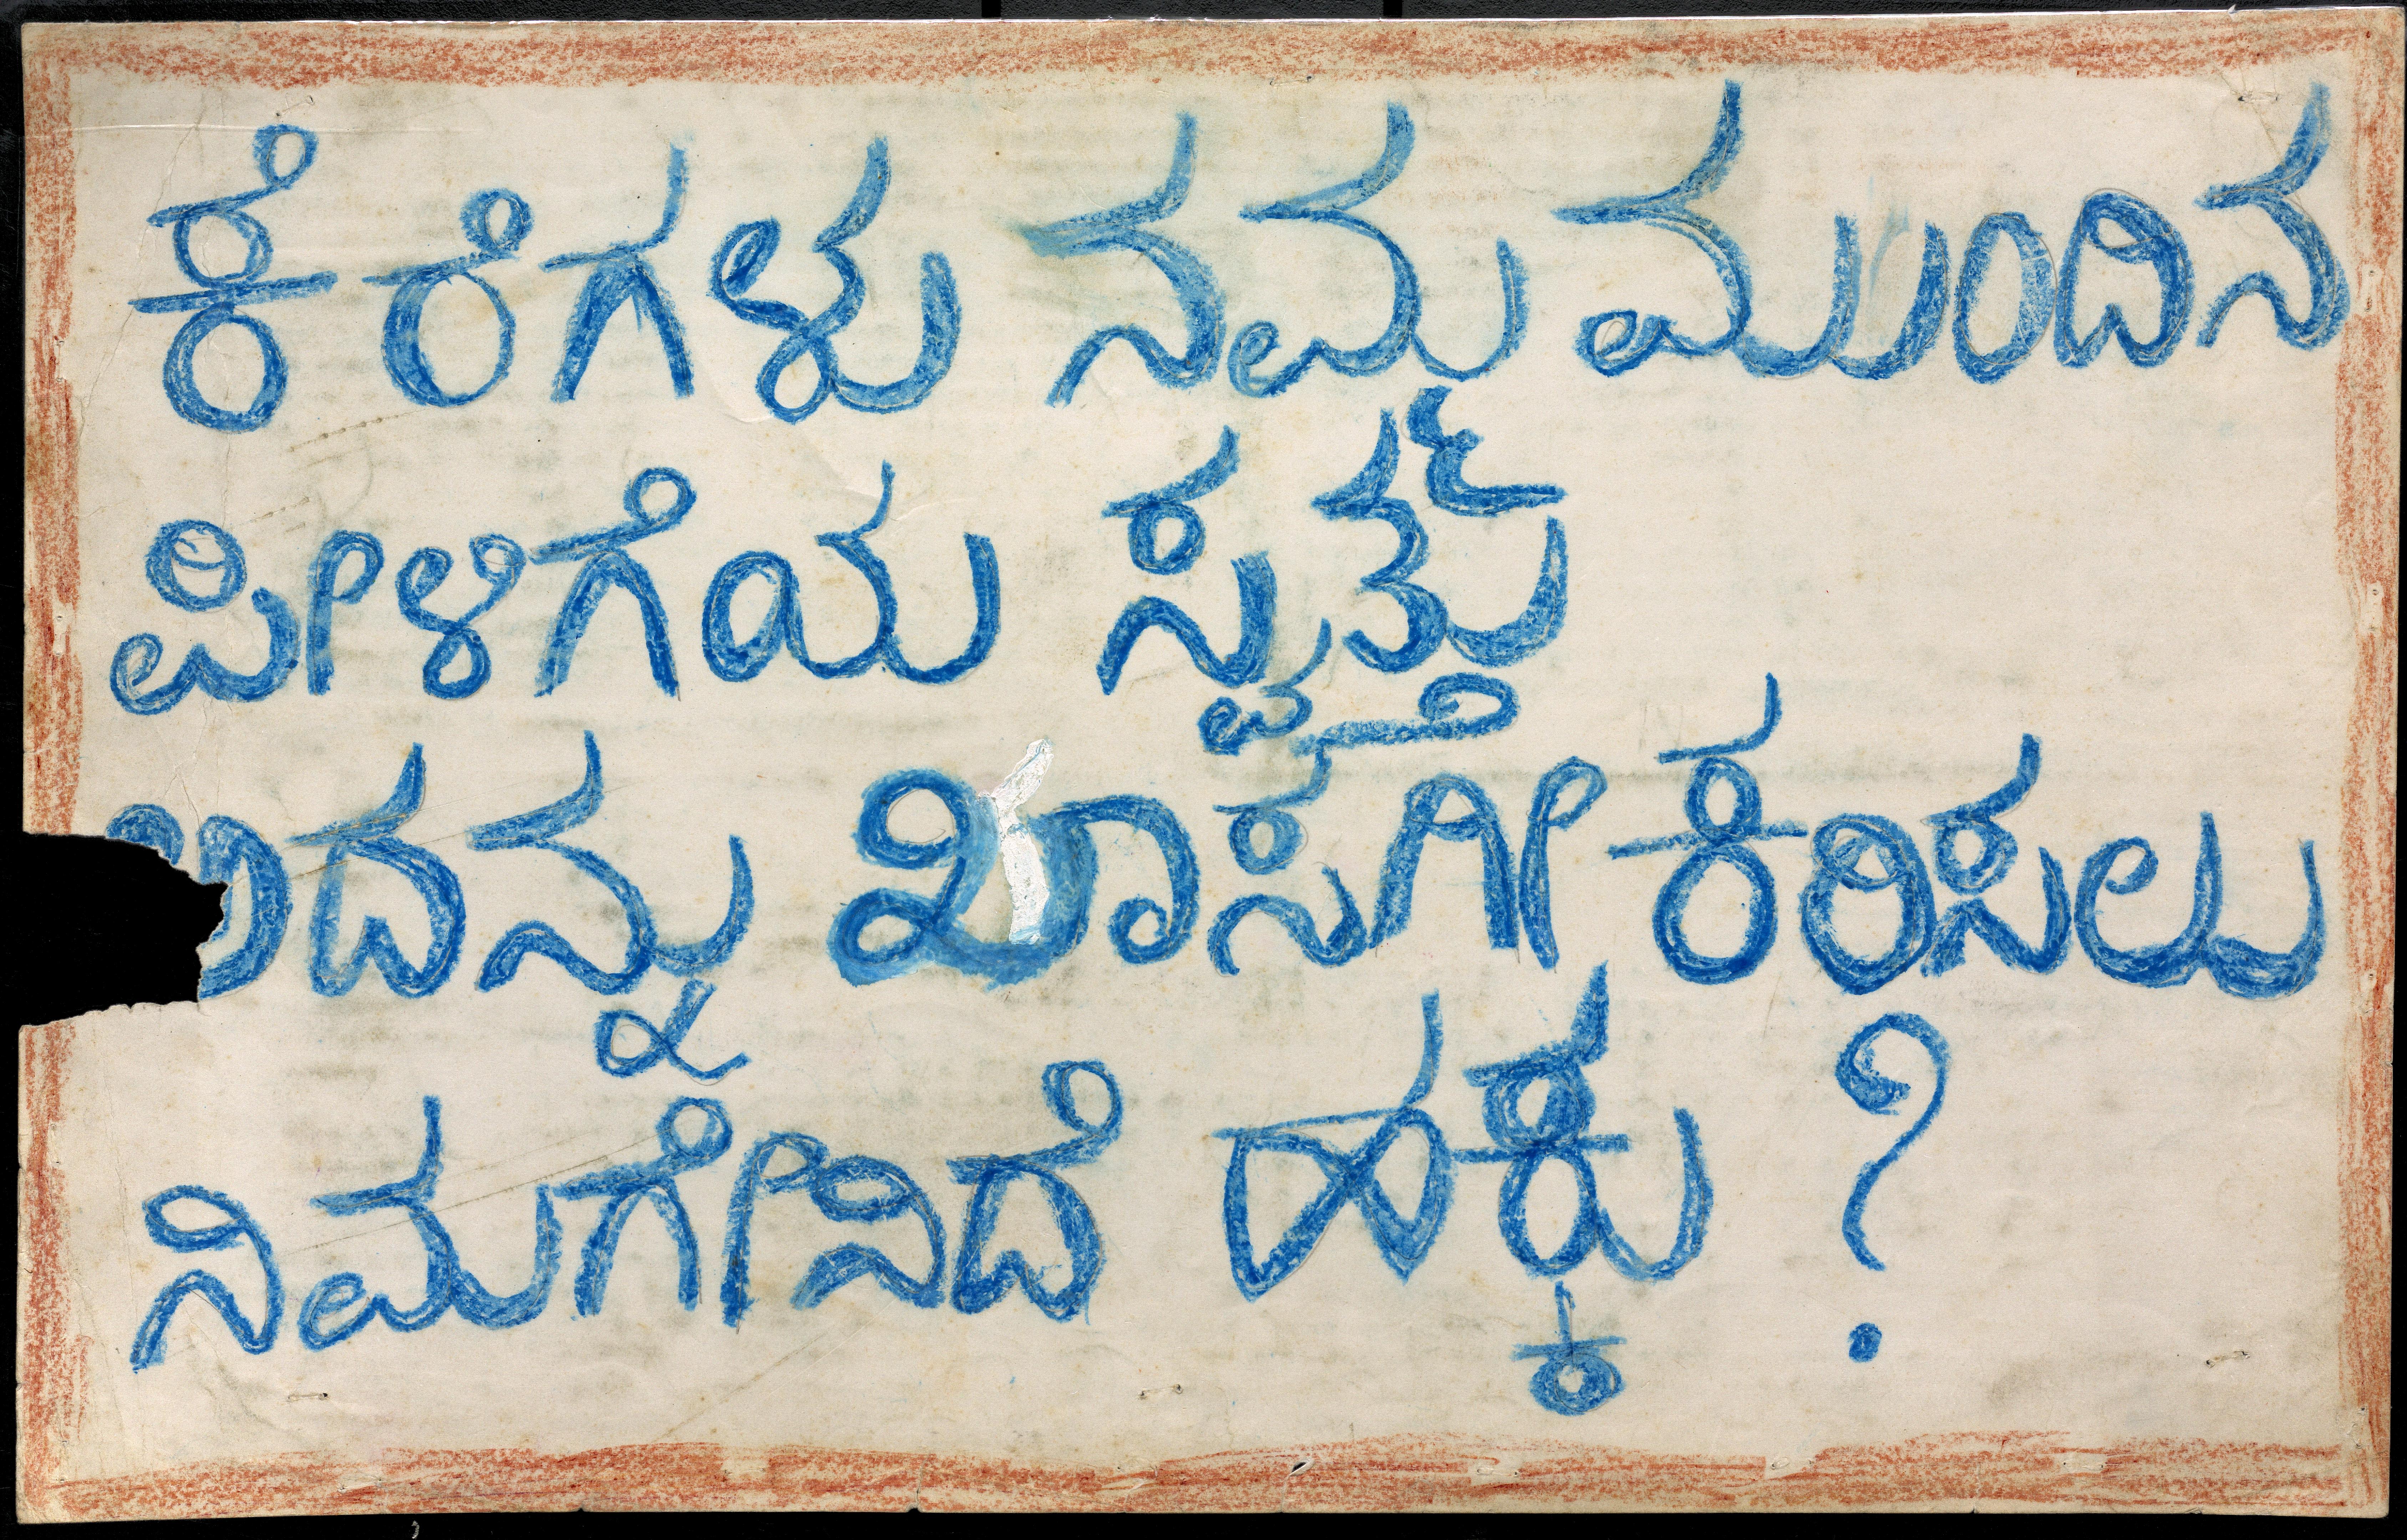 ಕೆರೆಗಳು ನಮ ಮುಂದಿನ
ಪೀಳಿಗೆಯ ಸ್ವತ್ತು
ಇದನ್ನು ಖಾಸಗೀಕರಿಸಲು
ನಿಮಗೇನಿದೆ ಹಕ್ಕು ?